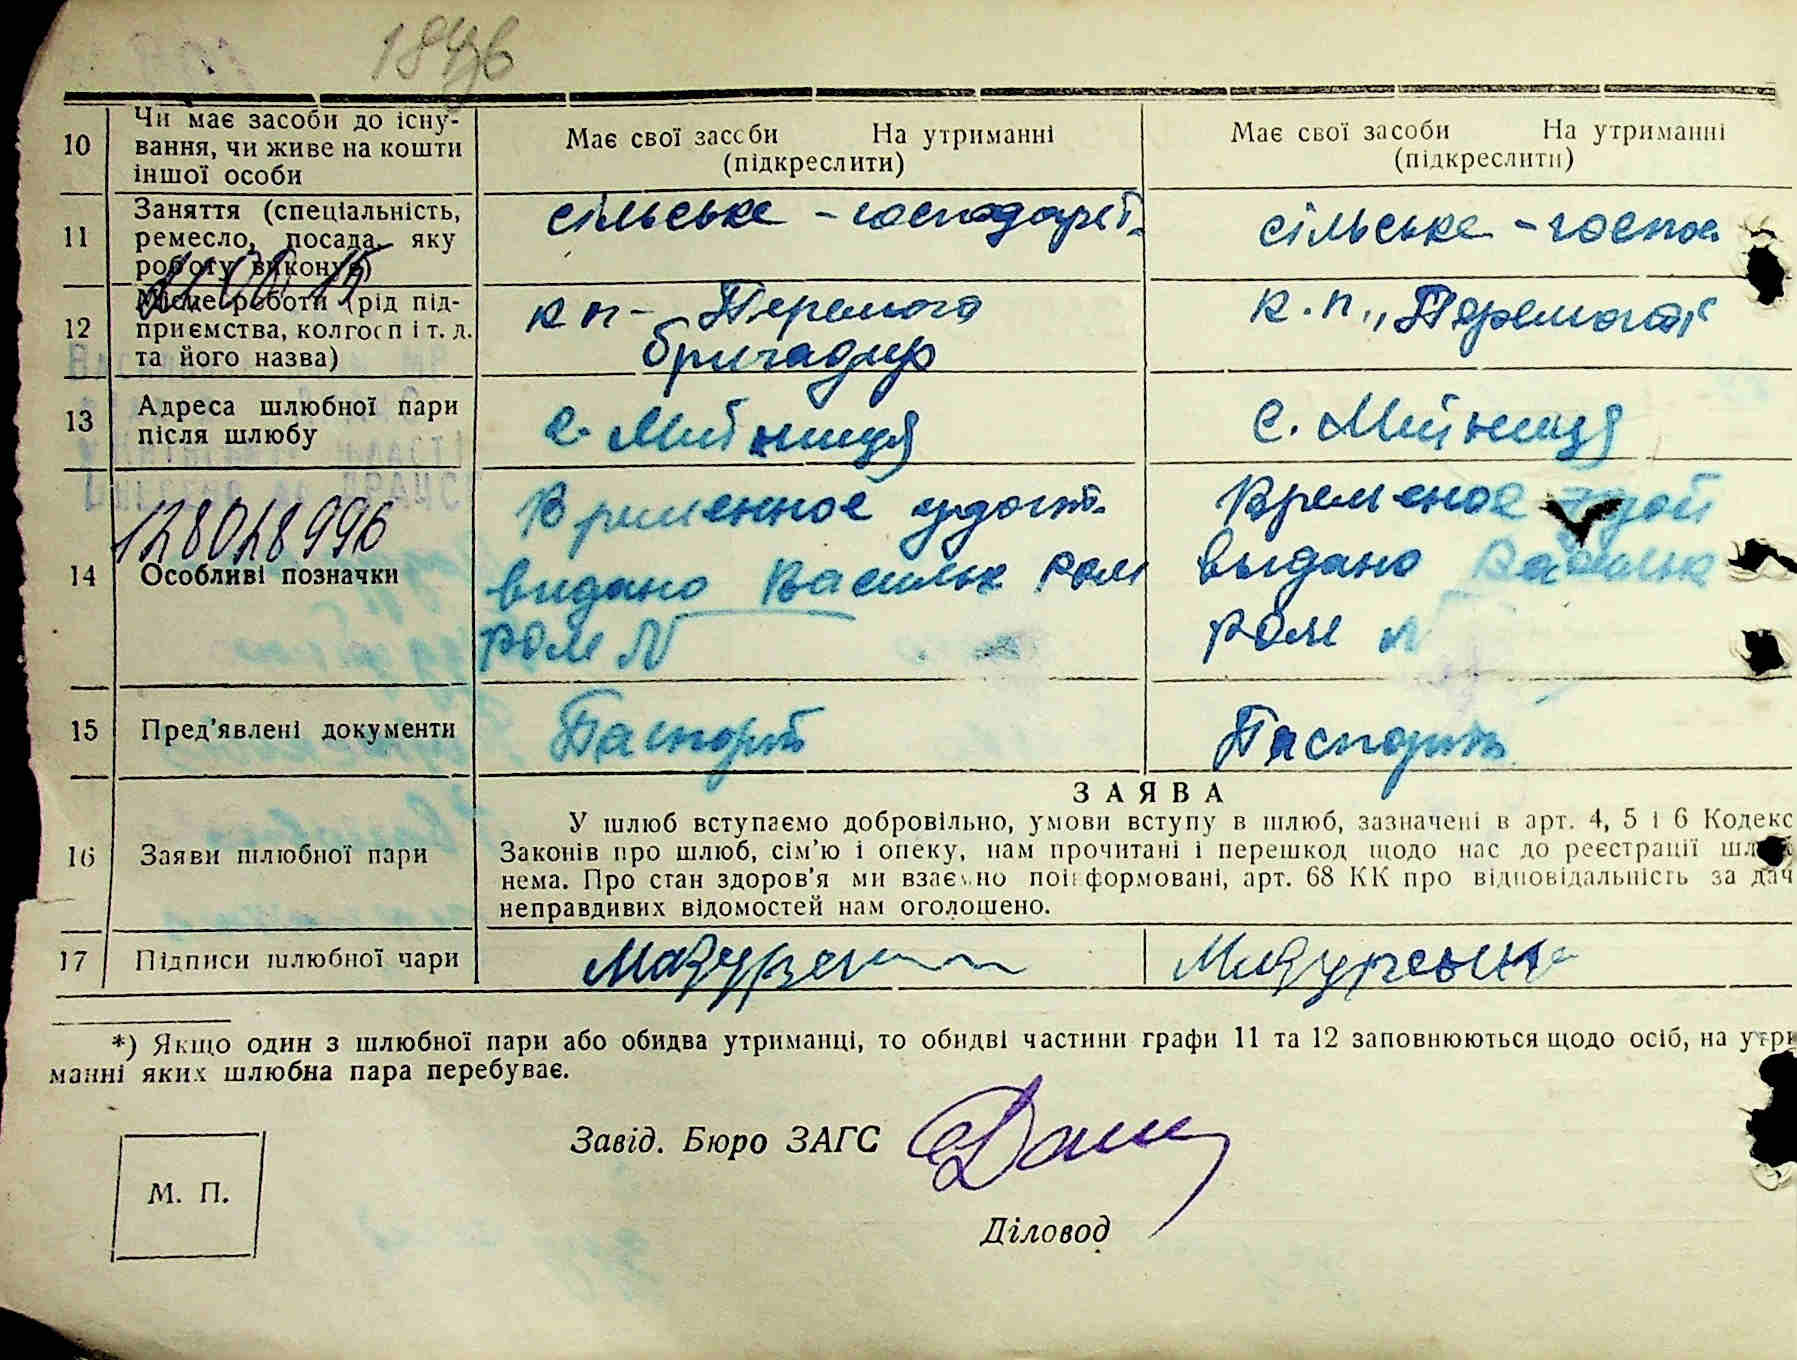 1846
10 Чи має засоби до існу- Має свої засоби На утриманні Має свої засоби На утриманні
вання, чи живе на кошти (підкреслити) (підкреслити)
іншої особи
11 Заняття (спеціальність, сільське - господарст. сільське - госпо
ремесло, посада, яку
роботу виконує)
12 Місце роботи (рід під- кп - Перемога к.п. „Перемога“
приємства, колгосп і т. д. бригадир
та його назва)
13 Адреса шлюбної пари с. Мийниця с. Мийниця
після шлюбу
128028996
14 Особливі позначки
Временное удост. Временое удост
видано Васильк выдано Василик
ром № ром №
15 Пред’явлені документи Паспорт Паспорт
ЗАЯВА
16 Заяви шлюбної пари
У шлюб вступаємо добровільно, умови вступу в шлюб, зазначені в арт. 4, 5 і 6 Кодекс
Законів про шлюб, сім’ю і опеку, нам прочитані і перешкод щодо нас до реєстрації шл
нема. Про стан здоров’я ми взаємно поінформовані, арт. 68 КК про відповідальність за дач
неправдивих відомостей нам оголошено.
17 Підписи шлюбної пари
*) Якщо один з шлюбної пари або обидва утриманці, то обидві частини графи 11 та 12 заповнюються щодо осіб, на утри
манні яких шлюбна пара перебуває.
Завід. Бюро ЗАГС
М. П.
Діловод